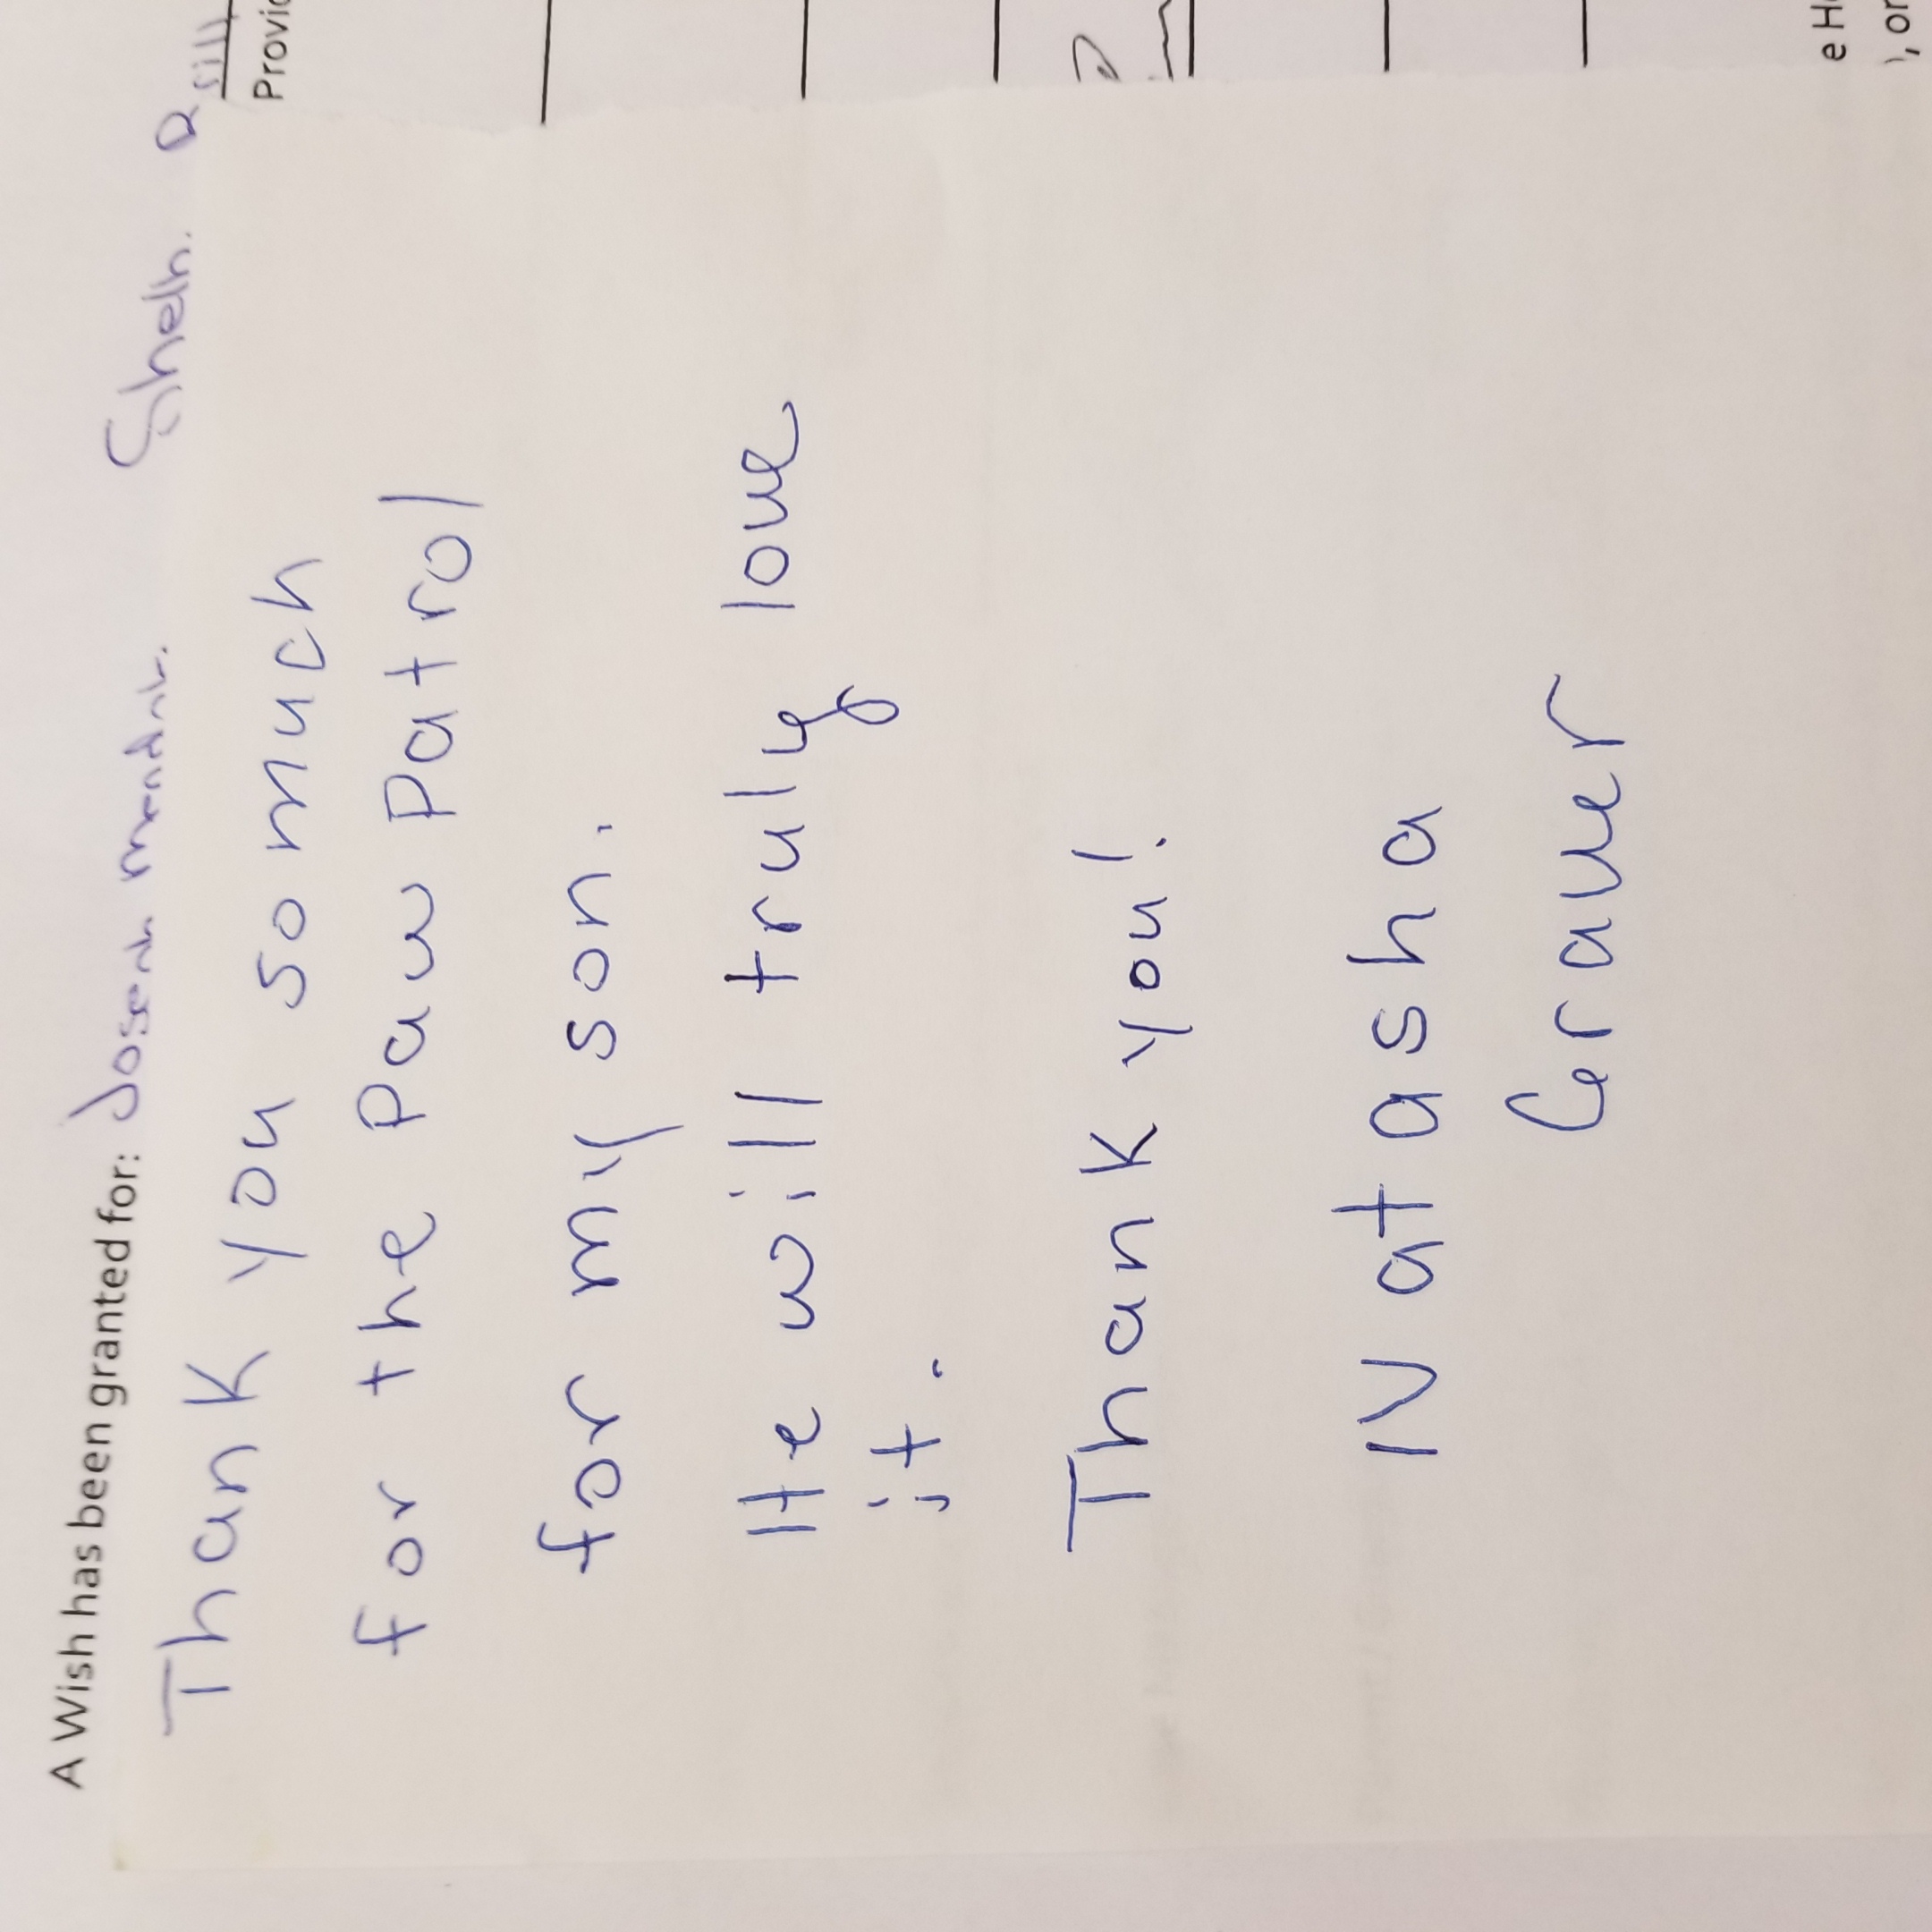 A Wish has been granted for: Joseph
Thank you so much
for the Paw Patrol
for my son.
He will truly love
it.
Thank you!
Natasha
Graver